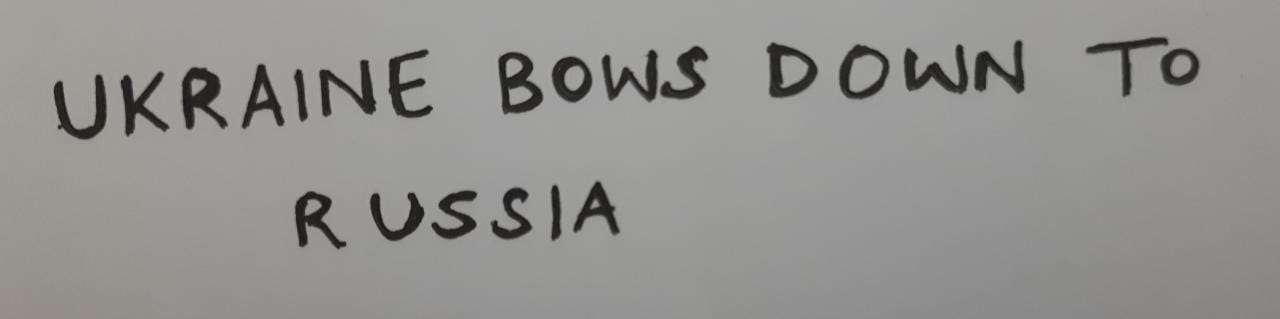 UKRAINE BOWS DOWN TO
RUSSIA